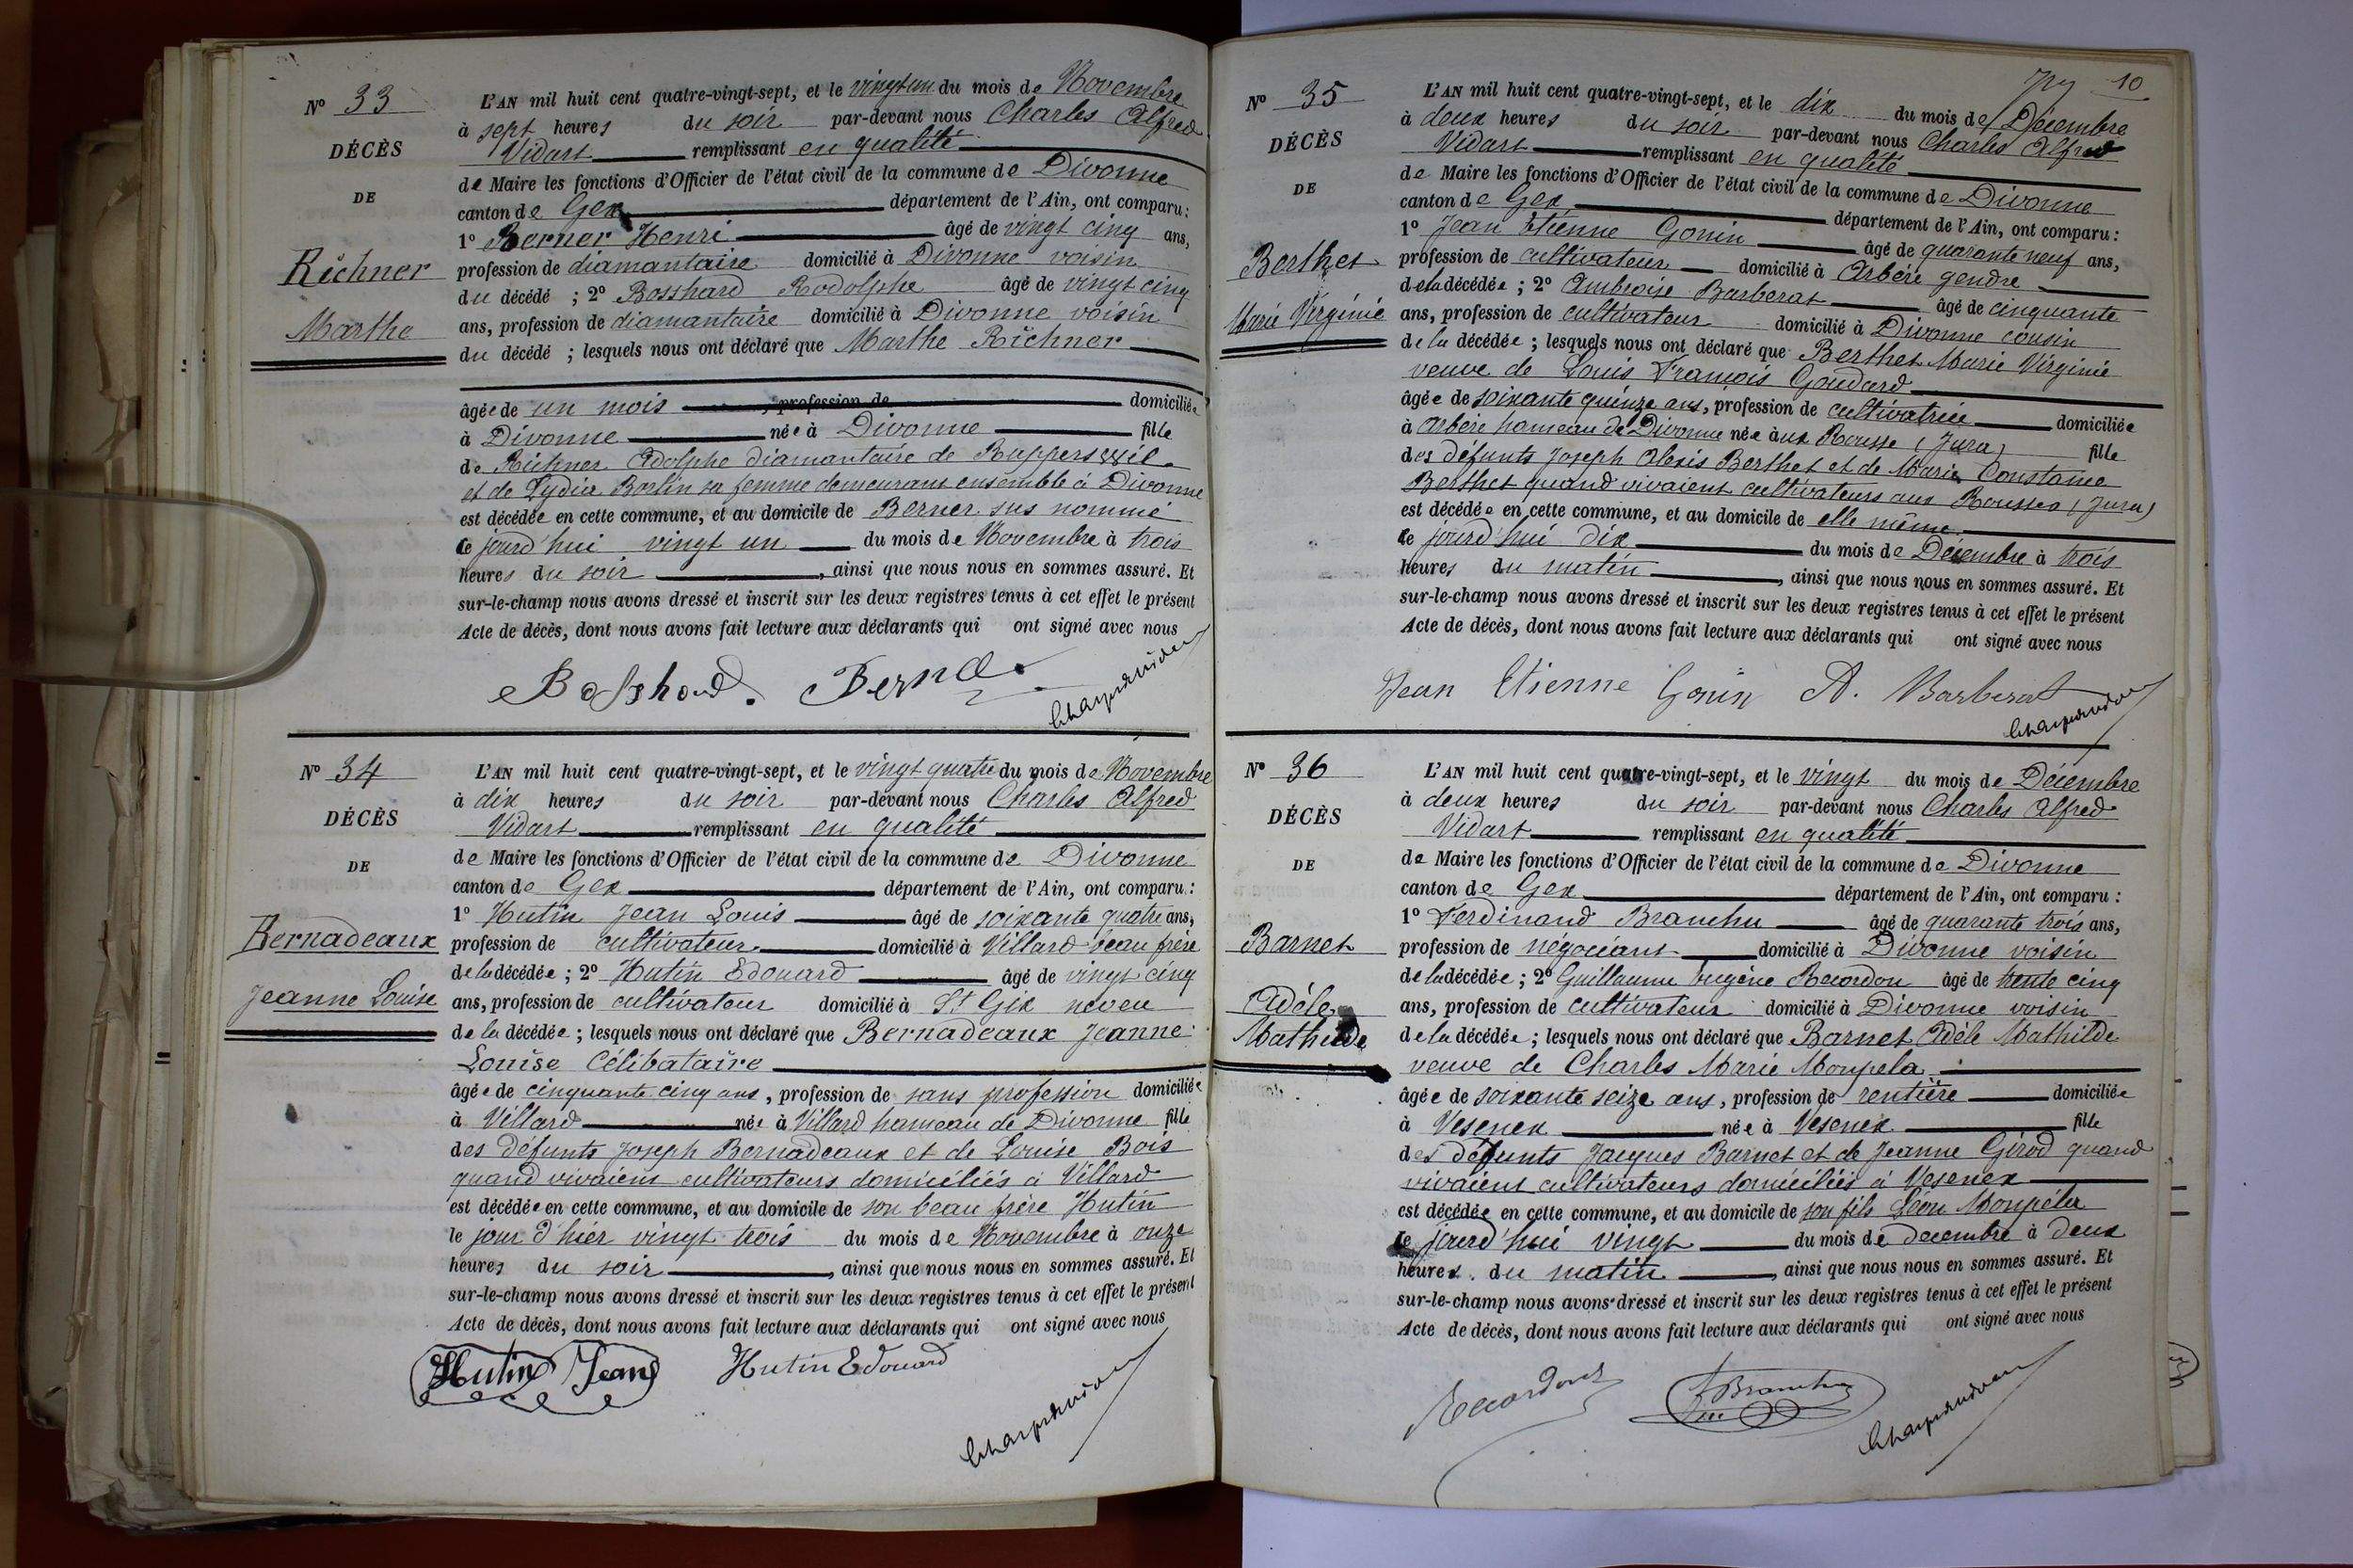 N° 33
DÉCÈS
DE
Richner
Marthe
L'AN mil huit cent quatre-vingt-sept, et le vingt un du mois de Novembre
à sept heures du soir par-devant nous Charles Alfred
Vidart remplissant en qualité
de Maire les fonctions d'Officier de l'état civil de la commune de Divonne
canton de Gex département de l'Ain, ont comparu :
1° Berner Henri âgé de vingt cinq ans,
profession de diamantaire domicilié à Divonne voisin
du décédé ; 2° Bosshard Rodolphe âgé de vingt cinq
ans, profession de diamantaire domicilié à Divonne voisin
du décédé ; lesquels nous ont déclaré que Marthe Richner
âgée de un mois, profession de domiciliée
à Divonne née à Divonne fille
de Richner Adolphe diamantaire de Rupperswil
et de Lydia sa femme demeurant ensemble à Divonne
est décédée en cette commune, et au domicile de Berner sus nommé
ce jourd'hui vingt un du mois de Novembre à trois
heures du soir, ainsi que nous nous en sommes assuré. Et
sur-le-champ nous avons dressé et inscrit sur les deux registres tenus à cet effet le présent
Acte de décès, dont nous avons fait lecture aux déclarants qui ont signé avec nous
Bosshard. Berner
N° 34
DÉCÈS
DE
Bernadeaux
Jeanne Louise
L'AN mil huit cent quatre-vingt-sept, et le vingt quatre du mois de Novembre
à dix heures du soir par-devant nous Charles Alfred
Vidart remplissant en qualité
de Maire les fonctions d'Officier de l'état civil de la commune de Divonne
canton de Gex département de l'Ain, ont comparu :
1° Hutin Jean Louis âgé de soixante quatre ans,
profession de cultivateur domicilié à Villard beau frère
de la décédée ; 2° Hutin Edouard âgé de vingt cinq
ans, profession de cultivateur domicilié à St Gix neveu
de la décédée ; lesquels nous ont déclaré que Bernadeaux Jeanne
Louise Célibataire
âgée de cinquante cinq ans, profession de sans profession domiciliée
à Villard née à Villard hameau de Divonne fille
des défunts Joseph Bernadeaux et de Louise Bois
quand vivaient cultivateurs domiciliés à Villard
est décédée en cette commune, et au domicile de son beau frère Hutin
le jour d'hier vingt trois du mois de Novembre à onze
heures du soir, ainsi que nous nous en sommes assuré. Et
sur-le-champ nous avons dressé et inscrit sur les deux registres tenus à cet effet le présent
Acte de décès, dont nous avons fait lecture aux déclarants qui ont signé avec nous
Hutin Jean Hutin Edouard
10
N° 35
DÉCÈS
DE
Berthet
Marie Virginie
L'AN mil huit cent quatre-vingt-sept, et le dix du mois de Décembre
à deux heures du soir par-devant nous Charles Alfred
Vidart remplissant en qualité
de Maire les fonctions d'Officier de l'état civil de la commune de Divonne
canton de Gex département de l'Ain, ont comparu :
1° Jean Etienne Gonin âgé de quarante neuf ans,
profession de cultivateur domicilié à Arbère gendre
de la décédée ; 2° Ambroise Barberat âgé de cinquante
ans, profession de cultivateur domicilié à Divonne cousin
de la décédée ; lesquels nous ont déclaré que Berthet Marie Virginie
veuve de Louis François Goudard
âgée de soixante quinze ans, profession de cultivatrice domiciliée
à Arbère hameau de Divonne née aux Rousse (Jura) fille
des défunts Joseph Alexis Berthet et de Marie Constance
Berthet quand vivaient cultivateurs aux Rousses (Jura)
est décédée en cette commune, et au domicile de elle même
ce jourd'hui dix du mois de Décembre à trois
heures du matin, ainsi que nous nous en sommes assuré. Et
sur-le-champ nous avons dressé et inscrit sur les deux registres tenus à cet effet le présent
Acte de décès, dont nous avons fait lecture aux déclarants qui ont signé avec nous
Jean Etienne Gonin A. Barberat
N° 36
DÉCÈS
DE
Barnet
Adèle
Mathilde
L'AN mil huit cent quatre-vingt-sept, et le vingt du mois de Décembre
à deux heures du soir par-devant nous Charles Alfred
Vidart remplissant en qualité
de Maire les fonctions d'Officier de l'état civil de la commune de Divonne
canton de Gex département de l'Ain, ont comparu :
1° Ferdinand Branchu âgé de quarante trois ans,
profession de négociant domicilié à Divonne voisin
de la décédée ; 2° Guillaume Eugène Recordon âgé de trente cinq
ans, profession de cultivateur domicilié à Divonne voisin
de la décédée ; lesquels nous ont déclaré que Barnet Adèle Mathilde
veuve de Charles Marie Monpela
âgée de soixante seize ans, profession de rentière domiciliée
à Vesenex née à Vesenex fille
des défunts Jacques Barnet et de Jeanne Girod quand
vivaient cultivateurs domiciliés à Vesenex
est décédée en cette commune, et au domicile de son fils Léon Monpéla
ce jourd'hui vingt du mois de decembre à deux
heures du matin, ainsi que nous nous en sommes assuré. Et
sur-le-champ nous avons dressé et inscrit sur les deux registres tenus à cet effet le présent
Acte de décès, dont nous avons fait lecture aux déclarants qui ont signé avec nous
Recordon F Branchu